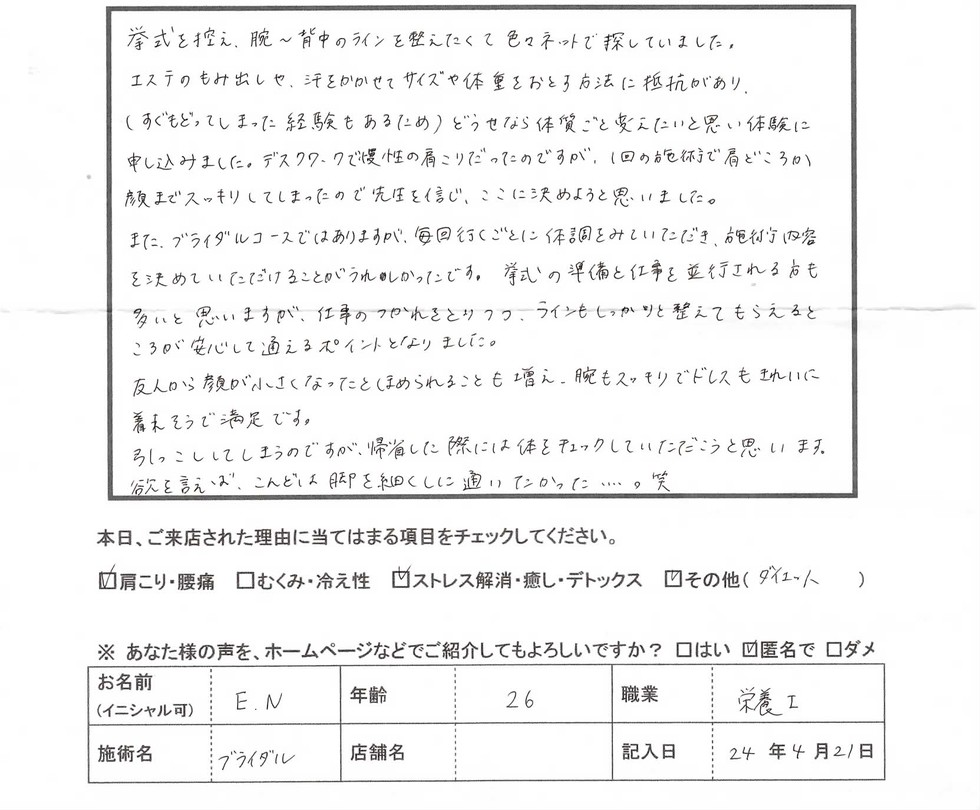 挙式を控え、腕～背中のラインを整えたくて色々ネットで探していました。
エステのもみ出しや、汗をかかせてサイズや体重をおとす方法に抵抗があり、
(すぐもどってしまった経験もあるため)どうせなら体質ごと変えたいと思い体験に
申し込みました。デスクワークで慢性の肩こりだったのですが、1回の施術で肩どころか
顔までスッキリしてしまったので先生を信じ、ここに決めようと思いました。
また、ブライダルコースではありますが、毎回行くごとに体調をみていただき、施術内容
を決めていただけることがうれしかったです。 挙式の準備と仕事を並行される方も
多いと思いますが、仕事のつかれをとりつつ、ラインもしっかりと整えてもらえると
ころが安心して通えるポイントとなりました。
友人から顔が小さくなったとほめられることも増え、腕もスッキリでドレスもきれいに
着れそうで満足です。
引っこししてしまうのですが、帰省した際には体をチェックしていただこうと思います。
欲を言えば、こんどは脚を細くしに通いたかった……。笑
本日、ご来店された理由に当てはまる項目をチェックしてください。
☑肩こり・腰痛 □むくみ・冷え性 ☑ストレス解消・癒し・デトックス ☑その他( ダイエット )
※ あなた様の声を、ホームページなどでご紹介してもよろしいですか? □はい ☑匿名で □ダメ
お名前 (イニシャル可) E.N 年齢 26 職業 栄養士
施術名 ブライダル 店舗名 記入日 24 年 4 月 21 日